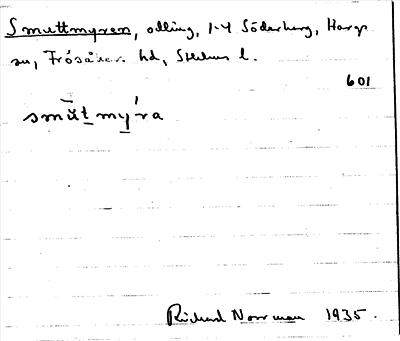 Smuttmyren, odling, 1-4 Söderberg, Hargs
sn, Frösåkers hd, Sthlms l.
601
smŭ̄t my̆́ra
Richard Norrman 1935.